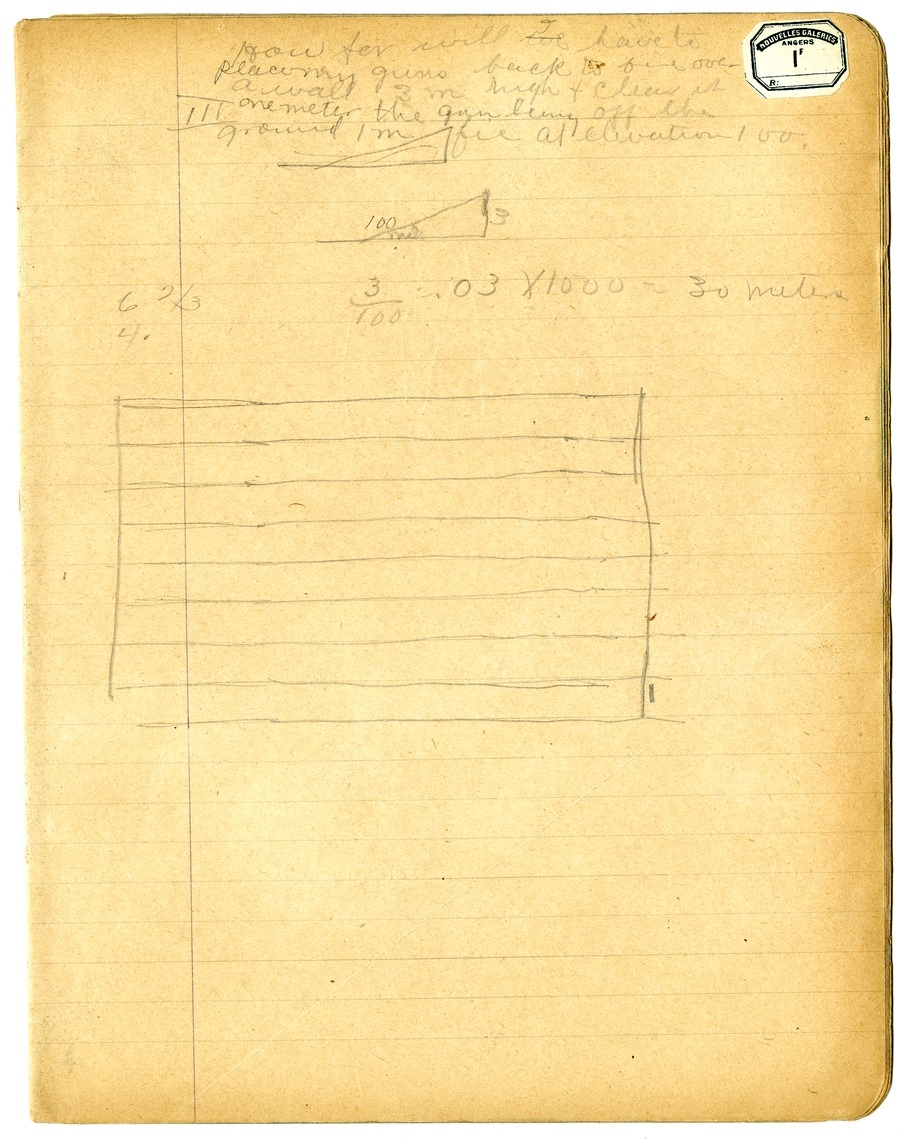 How far will we have to
place my guns back to fire over
a wall 3 m high & clear it
one meter the gun being off the
III
ground 1 m fire at elevation 100.
100
mil
3
3/100 = .03 X 1000 = 30 meters
6 2/3
4.
NOUVELLES GALERIES
ANGERS
1F
R: